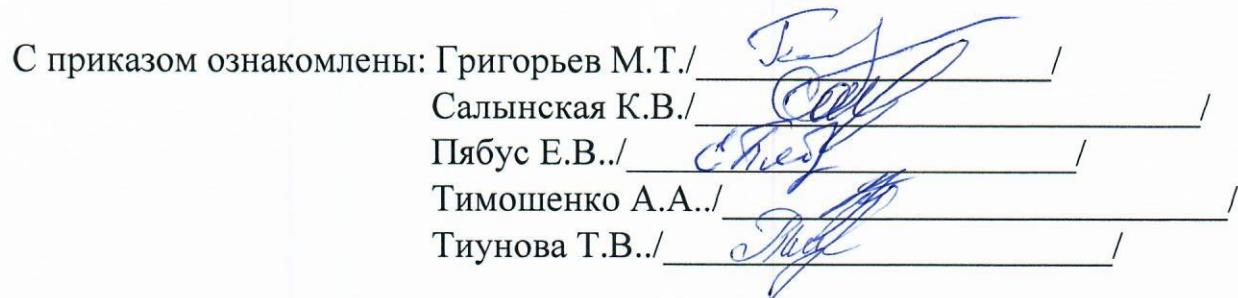 С приказом ознакомлены: Григорьев М.Т./____________________/
Салынская К.В./____________________________/
Пябус Е.В../_________________________/
Тимошенко А.А../____________________________/
Тиунова Т.В../_________________________/